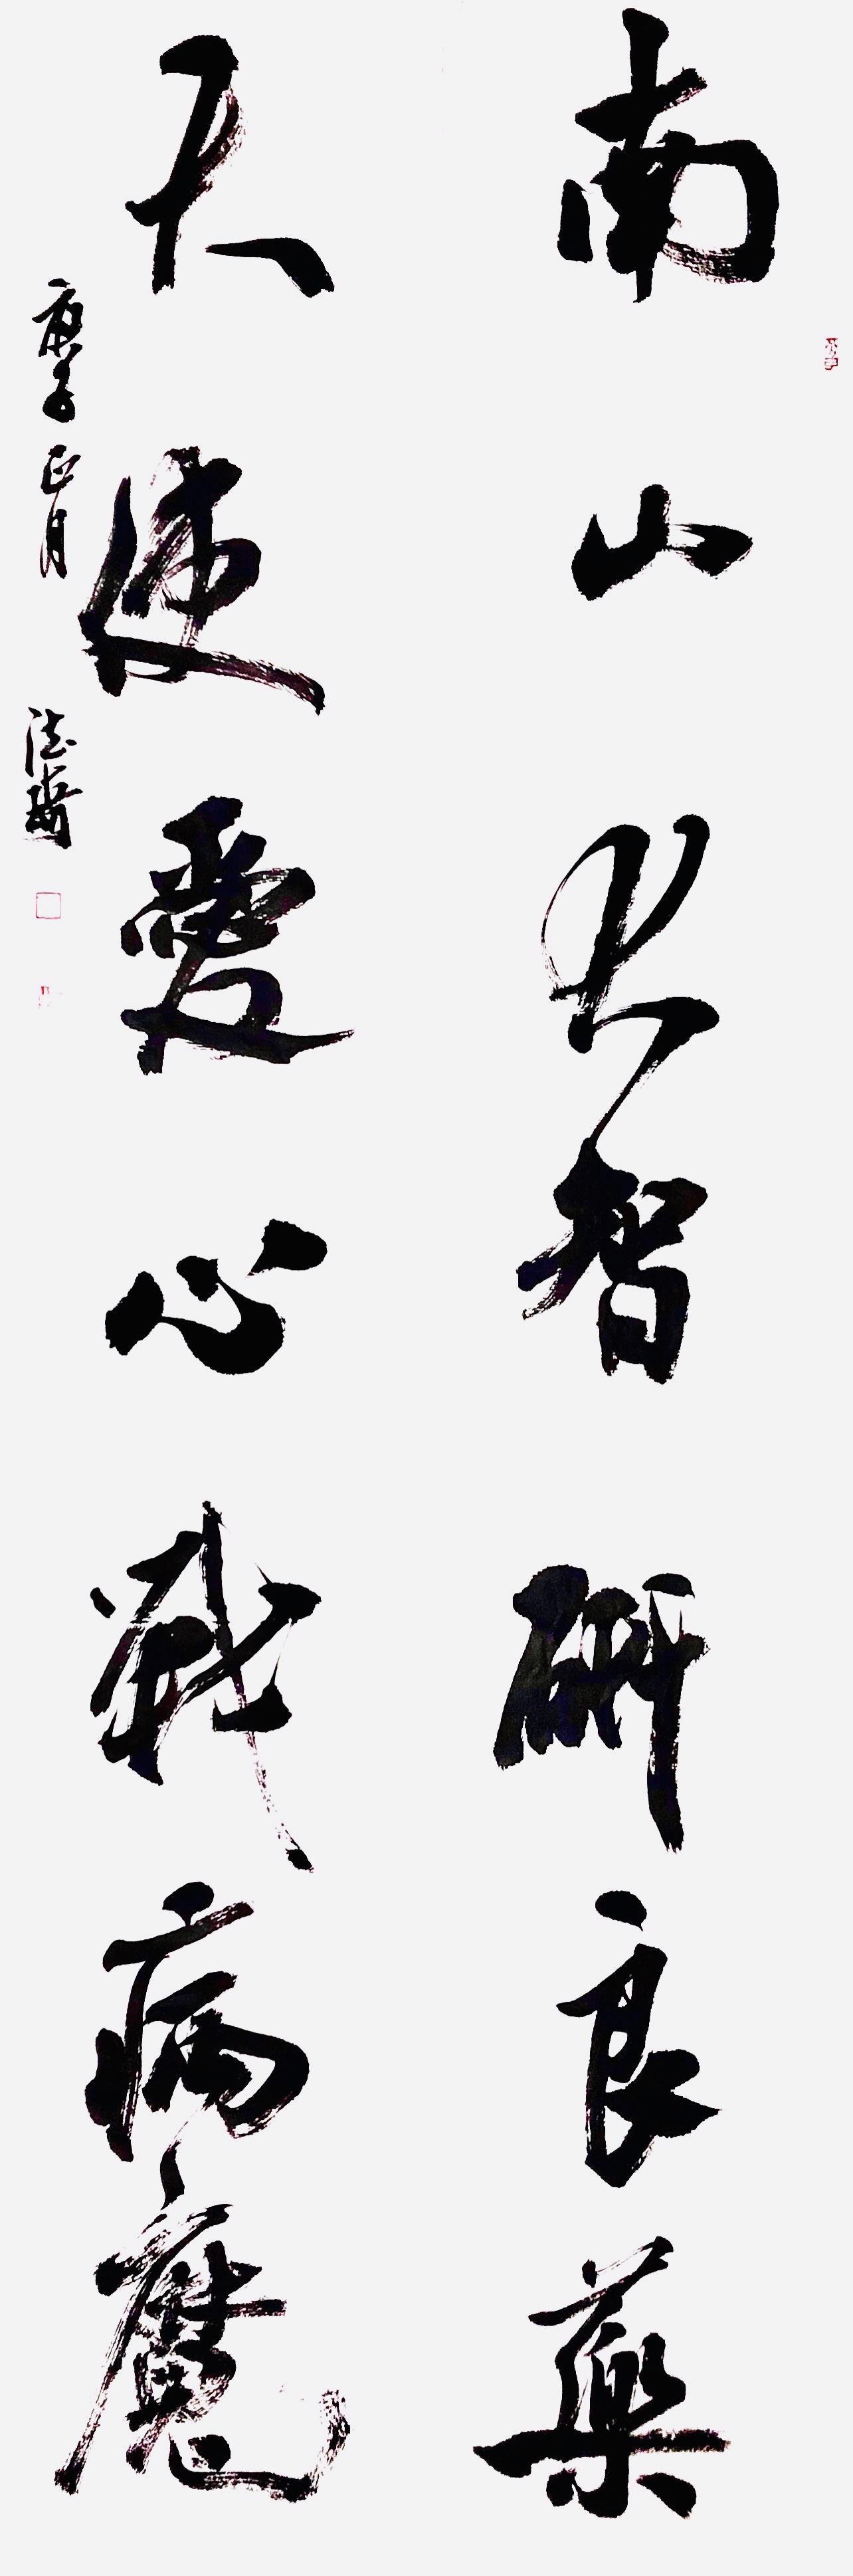 南山大智研良藥
天使愛心戰病魔
庚子正月